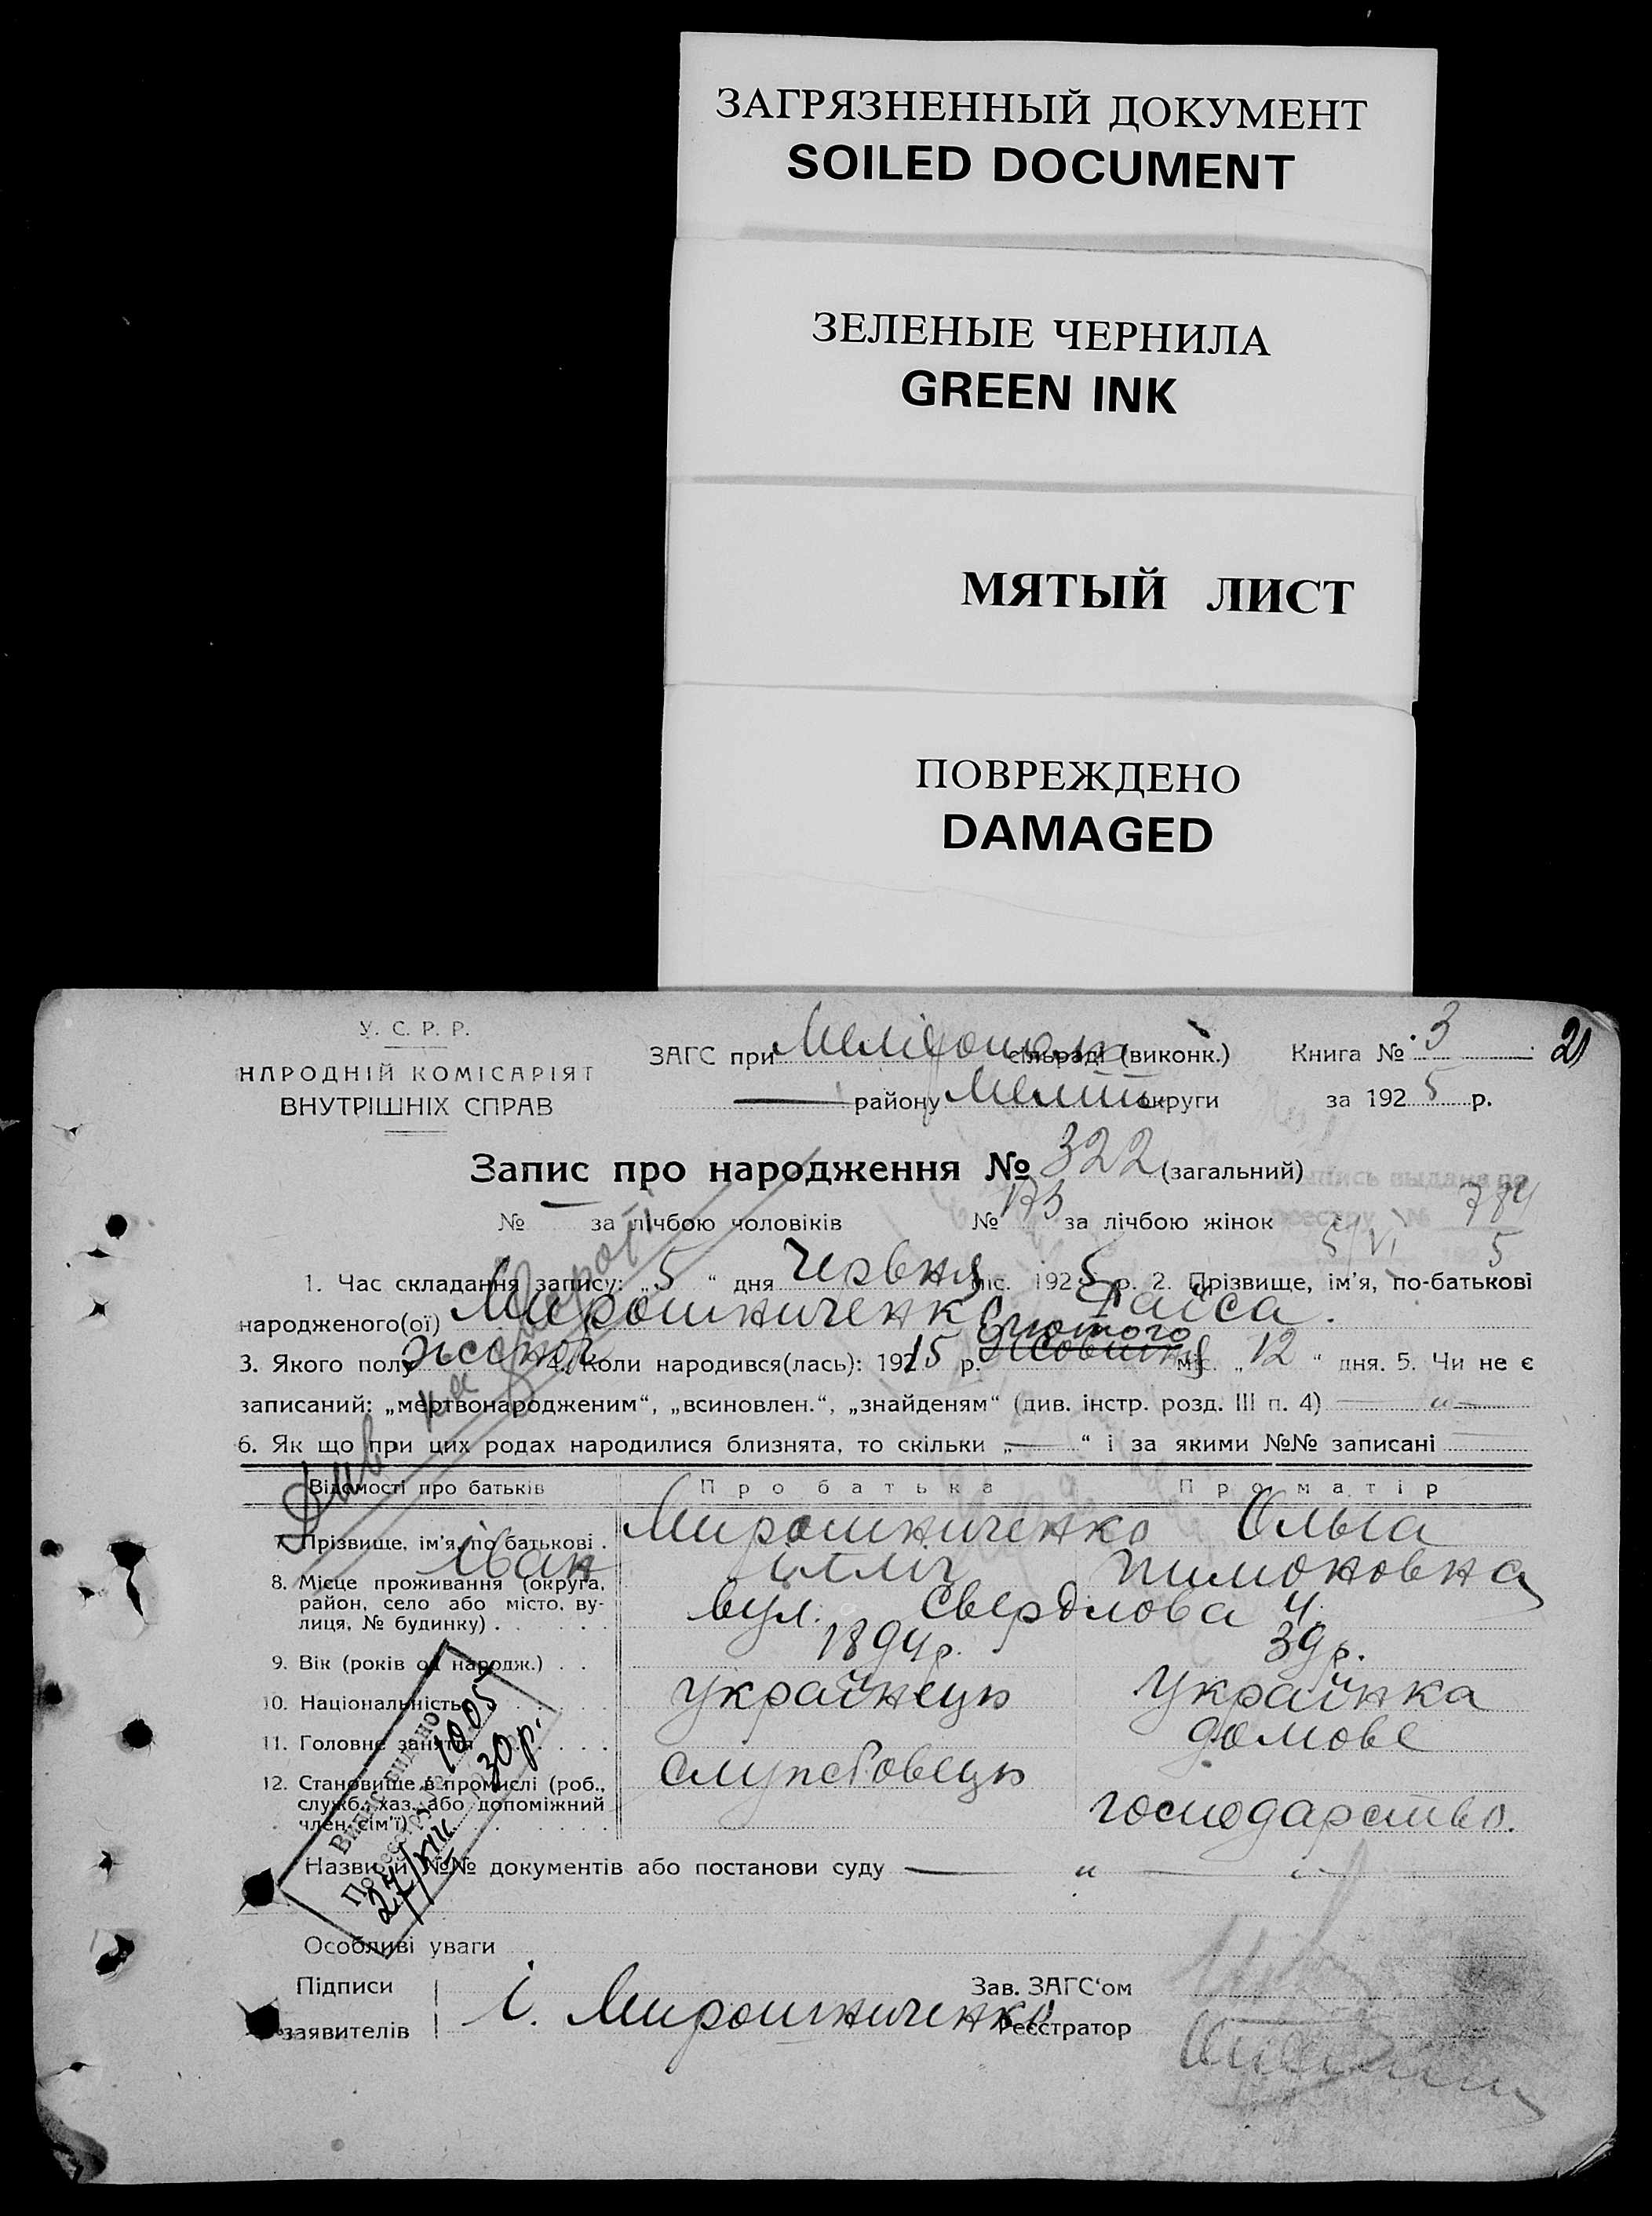 ЗАГРЯЗНЕННЫЙ ДОКУМЕНТ
SOILED DOCUMENT
ЗЕЛЕНЫЕ ЧЕРНИЛА
GREEN INK
МЯТЫЙ ЛИСТ
ПОВРЕЖДЕНО
DAMAGED
У. С. Р. Р.
НАРОДНІЙ КОМІСАРІЯТ
ВНУТРІШНІХ СПРАВ
ЗАГС при сільраді (виконк.) Книга № 3
21
району Меліт. округи за 1925 р.
Запис про народження № 322 (загальний)
Выпись выдана по
реестру № 784
5/VI 5
№ — за лічбою чоловіків № 173 за лічбою жінок
1. Час складання запису: „5“ дня Червня міс. 1925 р. 2. Прізвище, ім'я, по-батькові
народженого(ої) Мирошниченко Раїса.
Лютого
3. Якого полу жоноч. 4. Коли народився(лась): 1915 р. Жовтня міс. „12“ дня. 5. Чи не є
записаний: „мертвонародженим“, „всиновлен.“, „знайденям“ (див. інстр. розд. III п. 4) — „ —
6. Як що при цих родах народилися близнята, то скільки „—“ і за якими №№ записані
Див на звороті
Відомості про батьків Про батька Про матір
7. Прізвище, ім'я, по батькові . Мирошниченко Ольга
Іван ілліч пимоновна
8. Місце проживання (округа, район, село або місто, вулиця, № будинку) . вул. Свердлова 4.
9. Вік (років од народж.) . . 1894р. 39 р.
10. Національність українець Українка
11. Головне заняття домове
12. Становище в промислі (роб., служб., хаз. або допоміжний член сім'ї) господарство.
Випис видано
По реєстру № 1005
27/XII 30 р.
Назви й №№ документів або постанови суду — „ — „ —
Особливі уваги
Підписи заявителів І. Мирошниченко
Зав. ЗАГС'ом
Реєстратор